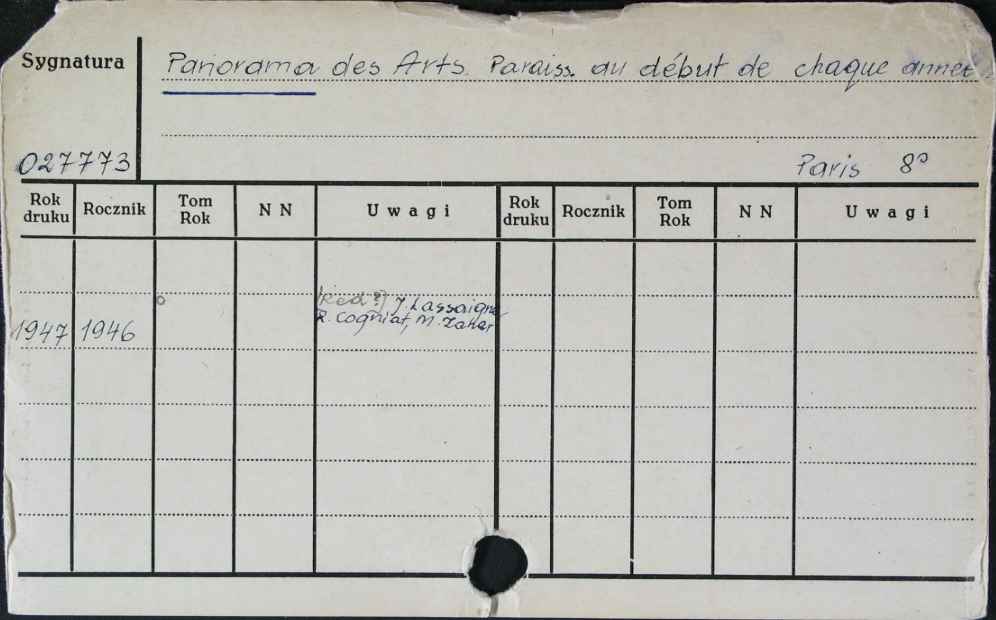 Sygnatura
Panorama des Arts. Paraiss. au début de chaque année
027773
Paris 8°
Rok druku Rocznik Tom Rok N N Uwagi Rok druku Rocznik Tom Rok N N Uwagi
[Red.?] J. Lassaigne
R. Cogniat, M. Zahar
1947 1946